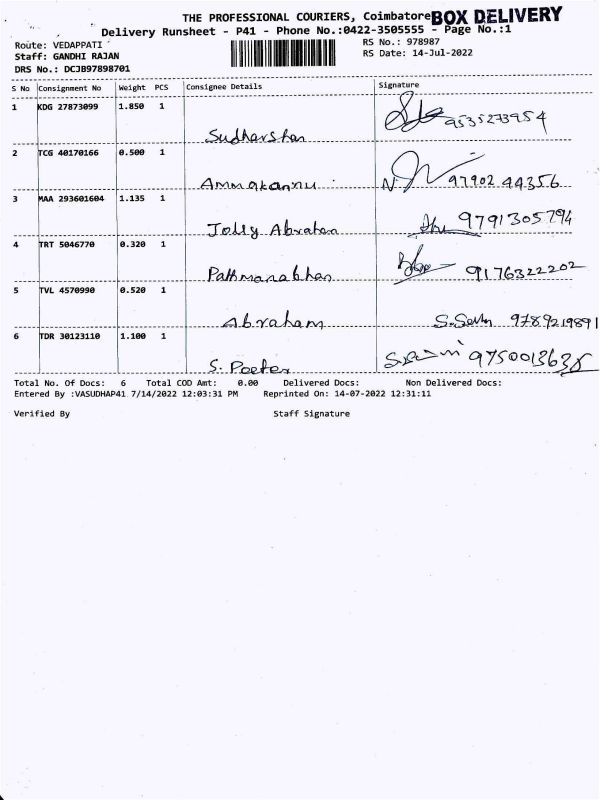 THE PROFESSIONAL COURIERS, Coimbatore BOX DELIVERY
Delivery Runsheet - P41 - Phone No.:0422-3505555 - Page No.:1
Route: VEDAPPATI
RS No.: 978987
Staff: GANDHI RAJAN
RS Date: 14-Jul-2022
DRS No.: DCJB97898701
S No Consignment No Weight PCS Consignee Details Signature
1 KDG 27873099 1.850 1
9535273954
Sudharshan
2 TCG 40170166 0.500 1
Ammakannu N. 97902 44356
3 MAA 293601604 1.135 1
Jolly Abraham 9791305794
4 TRT 5046770 0.320 1
Pathmanabhan 9176322202
5 TVL 4570990 0.520 1
Abraham 9789219891
6 TDR 30123110 1.100 1
S. Peeter
Total No. Of Docs: 6 Total COD Amt: 0.00 Delivered Docs: Non Delivered Docs:
Entered By :VASUDHAP41 7/14/2022 12:03:31 PM Reprinted On: 14-07-2022 12:31:11
Verified By Staff Signature